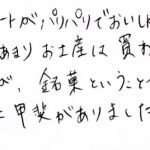 ートがパリパリでおいし
あまり お土産は 買わ
が、銘菓ということ
と甲斐がありました